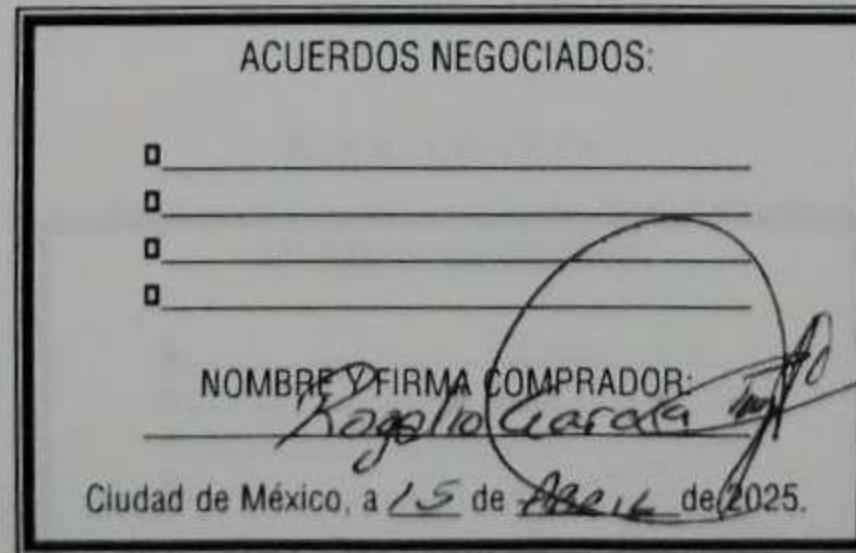 ACUERDOS NEGOCIADOS:
NOMBRE Y FIRMA COMPRADOR:
Rogelio García
Ciudad de México, a 15 de ABRIL de 2025.